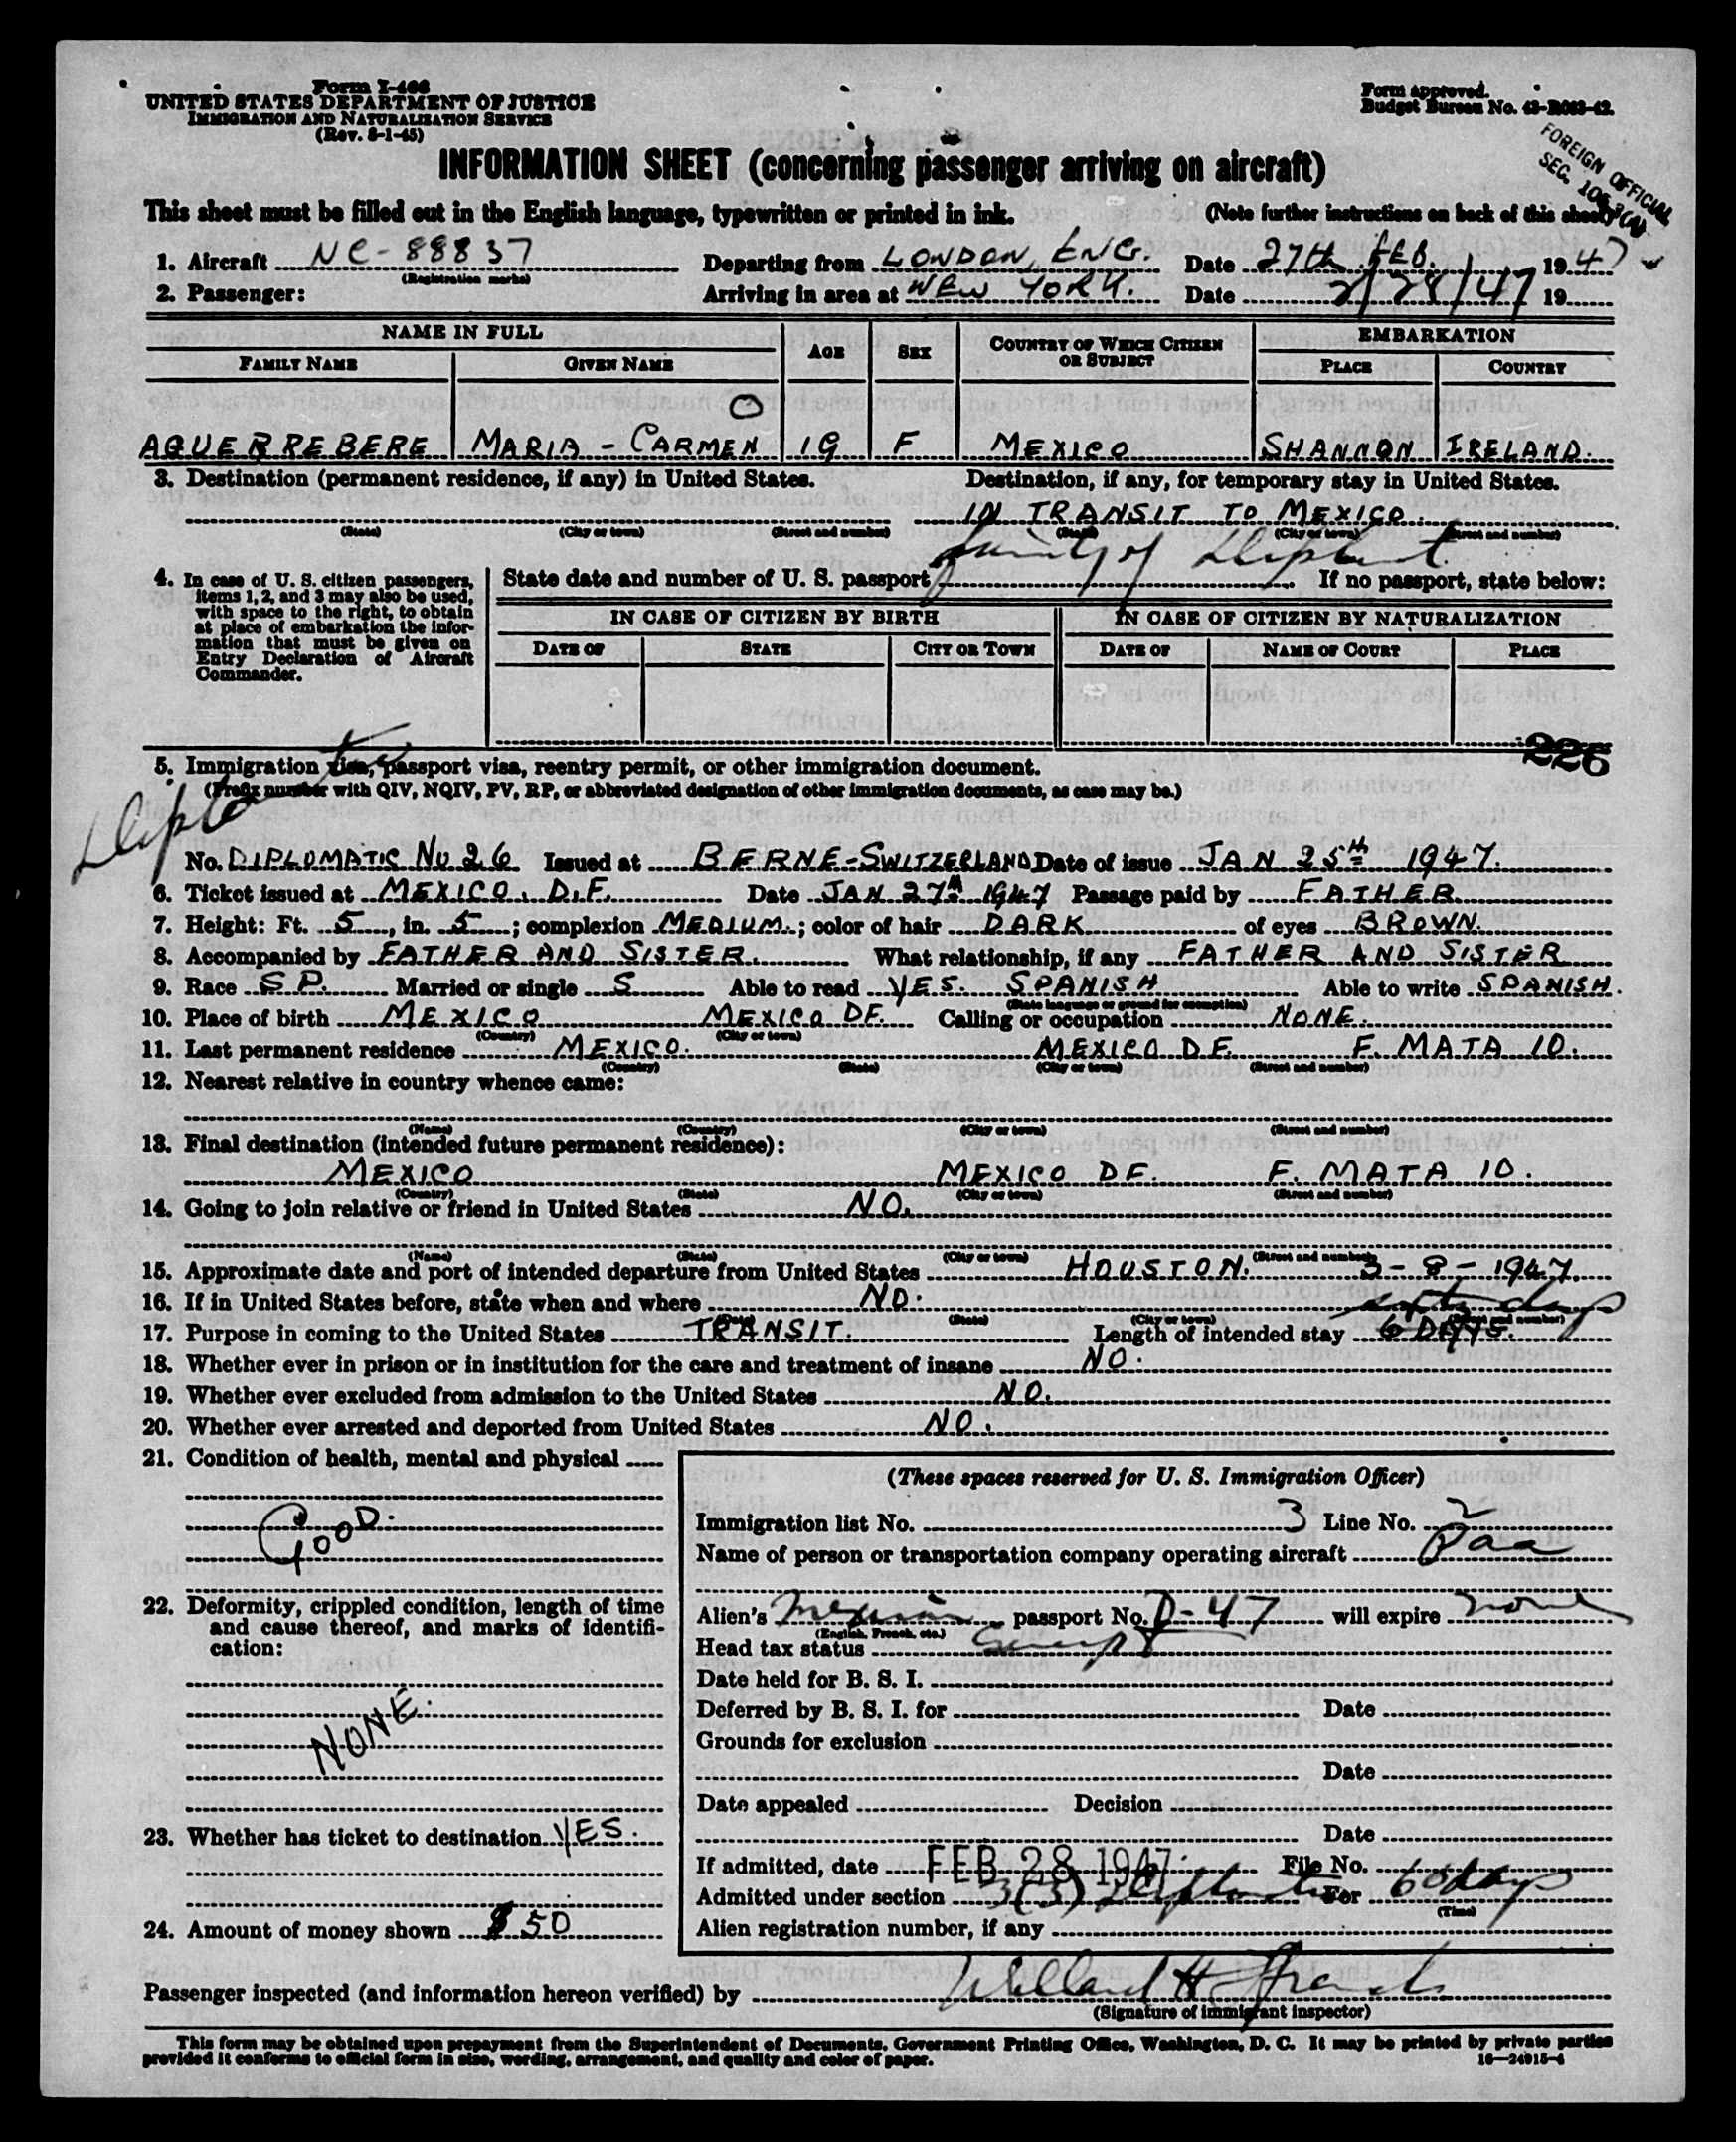 Form I-466
UNITED STATES DEPARTMENT OF JUSTICE
IMMIGRATION AND NATURALIZATION SERVICE
(Rev. 8-1-45)
Form approved.
Budget Bureau No. 43-R063-42.
FOREIGN OFFICIAL
SEC.
INFORMATION SHEET (concerning passenger arriving on aircraft)
This sheet must be filled out in the English language, typewritten or printed in ink. (Note further instructions on back of this sheet)
1. Aircraft NC-88837 Departing from LONDON, ENG. Date 27th FEB. 1947
(Registration marks)
2. Passenger: Arriving in area at NEW YORK. Date 2/28/47 19
NAME IN FULL AGE SEX COUNTRY OF WHICH CITIZEN OR SUBJECT EMBARKATION
FAMILY NAME GIVEN NAME PLACE COUNTRY
O
AGUERREBERE MARIA - CARMEN 19 F MEXICO SHANNON IRELAND.
3. Destination (permanent residence, if any) in United States. Destination, if any, for temporary stay in United States.
IN TRANSIT TO MEXICO.
(State) (City or town) (Street and number) (State) (City or town) (Street and number)
family of
4. In case of U. S. citizen passengers, items 1, 2, and 3 may also be used, with space to the right, to obtain at place of embarkation the information that must be given on Entry Declaration of Aircraft Commander.
State date and number of U. S. passport If no passport, state below:
IN CASE OF CITIZEN BY BIRTH IN CASE OF CITIZEN BY NATURALIZATION
DATE OF STATE CITY OR TOWN DATE OF NAME OF COURT PLACE
226
5. Immigration visa, passport visa, reentry permit, or other immigration document.
(Prefix number with QIV, NQIV, PV, RP, or abbreviated designation of other immigration documents, as case may be.)
No. DIPLOMATIC No 26 Issued at BERNE-SWITZERLAND Date of issue JAN 25th 1947.
6. Ticket issued at MEXICO, D.F. Date JAN 27th 1947 Passage paid by FATHER
7. Height: Ft. 5, in. 5; complexion MEDIUM.; color of hair DARK of eyes BROWN.
8. Accompanied by FATHER AND SISTER. What relationship, if any FATHER AND SISTER
9. Race SP. Married or single S Able to read YES. SPANISH Able to write SPANISH.
(State language or ground for exemption)
10. Place of birth MEXICO MEXICO DF. Calling or occupation NONE.
(Country) (City or town)
11. Last permanent residence MEXICO. MEXICO D F. F. MATA 10.
(Country) (State) (City or town) (Street and number)
12. Nearest relative in country whence came:
(Name) (Country) (City or town) (Street and number)
13. Final destination (intended future permanent residence):
MEXICO MEXICO DF. F. MATA 10.
(Country) (State) (City or town) (Street and number)
14. Going to join relative or friend in United States NO.
(Name) (State) (City or town) (Street and number)
15. Approximate date and port of intended departure from United States HOUSTON. 3-8-1947.
16. If in United States before, state when and where NO.
(Date) (State) (City or town) (Street and number)
sixty days
17. Purpose in coming to the United States TRANSIT. Length of intended stay 6 DAYS.
18. Whether ever in prison or in institution for the care and treatment of insane NO.
19. Whether ever excluded from admission to the United States NO.
20. Whether ever arrested and deported from United States NO.
21. Condition of health, mental and physical
GOOD.
22. Deformity, crippled condition, length of time and cause thereof, and marks of identification:
NONE.
23. Whether has ticket to destination YES.
24. Amount of money shown $50
(These spaces reserved for U. S. Immigration Officer)
Immigration list No. 3 Line No. 2
Name of person or transportation company operating aircraft Paa
Alien's Mexican passport No. D-47 will expire none
(English, French, etc.)
Head tax status Exempt
Date held for B. S. I.
Deferred by B. S. I. for Date
Grounds for exclusion
Date
Date appealed Decision
Date
If admitted, date FEB 28 1947 File No.
Admitted under section 3(3) For 60 days
(Time)
Alien registration number, if any
Passenger inspected (and information hereon verified) by
(Signature of immigrant inspector)
This form may be obtained upon prepayment from the Superintendent of Documents, Government Printing Office, Washington, D. C. It may be printed by private parties
provided it conforms to official form in size, wording, arrangement, and quality and color of paper. 16—24915-4